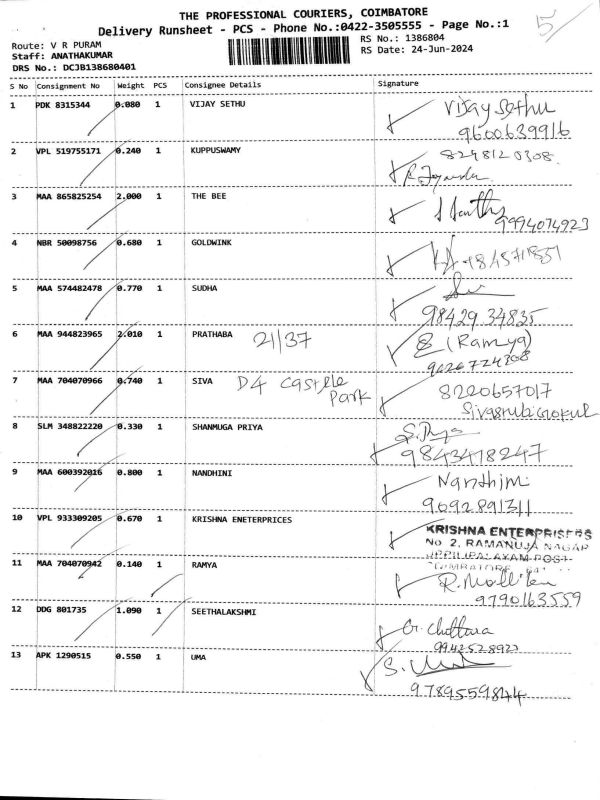 THE PROFESSIONAL COURIERS, COIMBATORE
Delivery Runsheet - PCS - Phone No.:0422-3505555 - Page No.:1
5
Route: V R PURAM
RS No.: 1386804
Staff: ANATHAKUMAR
RS Date: 24-Jun-2024
DRS No.: DCJB138680401
S No Consignment No Weight PCS Consignee Details Signature
1 PDK 8315344 0.080 1 VIJAY SETHU Vijay Sethu
9600639916
2 VPL 519755171 0.240 1 KUPPUSWAMY 8248120308
3 MAA 865825254 2.000 1 THE BEE
9994074923
4 NBR 50098756 0.680 1 GOLDWINK
5 MAA 574482478 0.770 1 SUDHA
98429 34835
6 MAA 944823965 2.010 1 PRATHABA 21/37 (Ramya)
7 MAA 704070966 0.740 1 SIVA D4 Castele Park 8220657017
8 SLM 348822220 0.330 1 SHANMUGA PRIYA
9843418247
9 MAA 600392016 0.800 1 NANDHINI Nandhini
9092891311
10 VPL 933309205 0.670 1 KRISHNA ENETERPRICES KRISHNA ENTERPRISES
No 2, RAMANUJA NAGAR
UPPILIPALAYAM POST
COIMBATORE
11 MAA 704070942 0.140 1 RAMYA
9790163559
12 DDG 801735 1.090 1 SEETHALAKSHMI
13 APK 1290515 0.550 1 UMA
9789559844